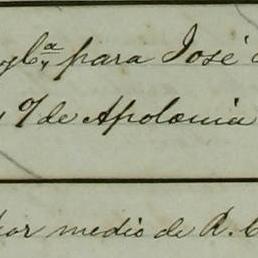 yglª para José
y 7 de Apolonia
por medio de R. C